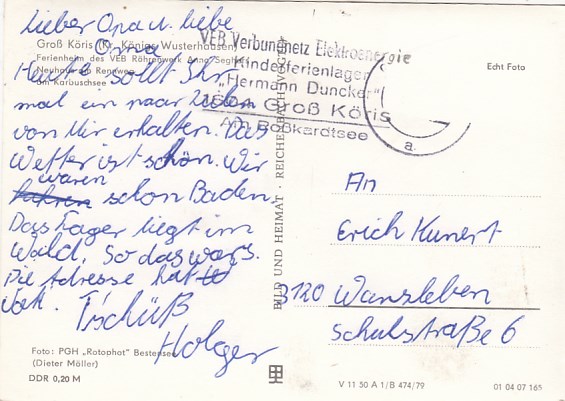 Lieber Opa u. liebe
Oma
Heute sollt Ihr
mal ein paar Zeilen
von Mir erhalten. Das
Wetter ist schön. Wir
waren
schon Baden.
Dass Lager liegt im
Wald. So das wars.
Die Adresse hat
Tschüß
Holger
Groß Köris (Kr. Königs Wusterhausen)
Ferienheim des VEB Röhrenwerk Anna Seghers
Neuhaus
am Karbuschsee
Foto: PGH „Rotophot" Bestensee
(Dieter Möller)
DDR 0,20 M
BILD UND HEIMAT · REICHENBACH
VEB Verbundnetz Elektroenergie
Kinderferienlager
„Hermann Duncker"
1609 Groß Köris
Am Roßkardtsee
Echt Foto
a
An
Erich Kunert
3120 Wansleben
Schulstraße 6
V 11 50 A 1/B 474/79
01 04 07 165